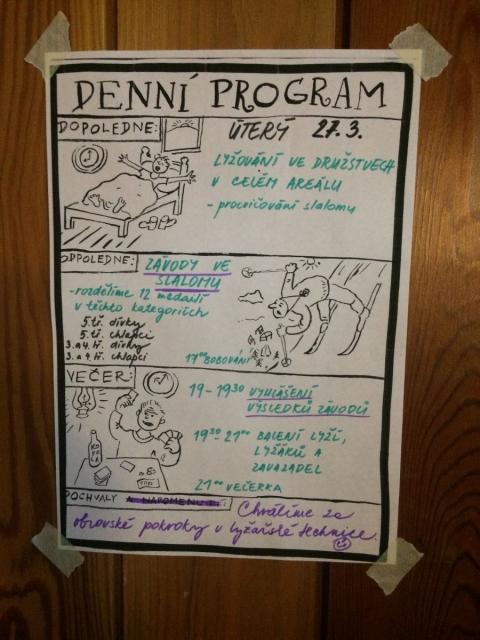 DENNÍ PROGRAM
DOPOLEDNE:
ÚTERÝ 27.3.
LYŽOVÁNÍ VE DRUŽSTVECH
V CELÉM AREÁLU
- procvičování slalomu
ODPOLEDNE:
ZÁVODY VE
SLALOMU
- rozdělíme 12 medailí
v těchto kategoriích
5.tř. dívky
5.tř. chlapci
3.a 4. tř. dívky
3. a 4. tř. chlapci
17⁰⁰ BOBOVÁNÍ
VEČER:
19 - 19³⁰ VYHLÁŠENÍ
VÝSLEDKŮ ZÁVODŮ
19³⁰ - 21⁰⁰ BALENÍ LYŽÍ,
LYŽÁKŮ A
ZAVAZADEL
21⁰⁰ VEČERKA
POCHVALY A NAPOMENUTÍ:
Chválíme za
obrovské pokroky v lyžařské technice.